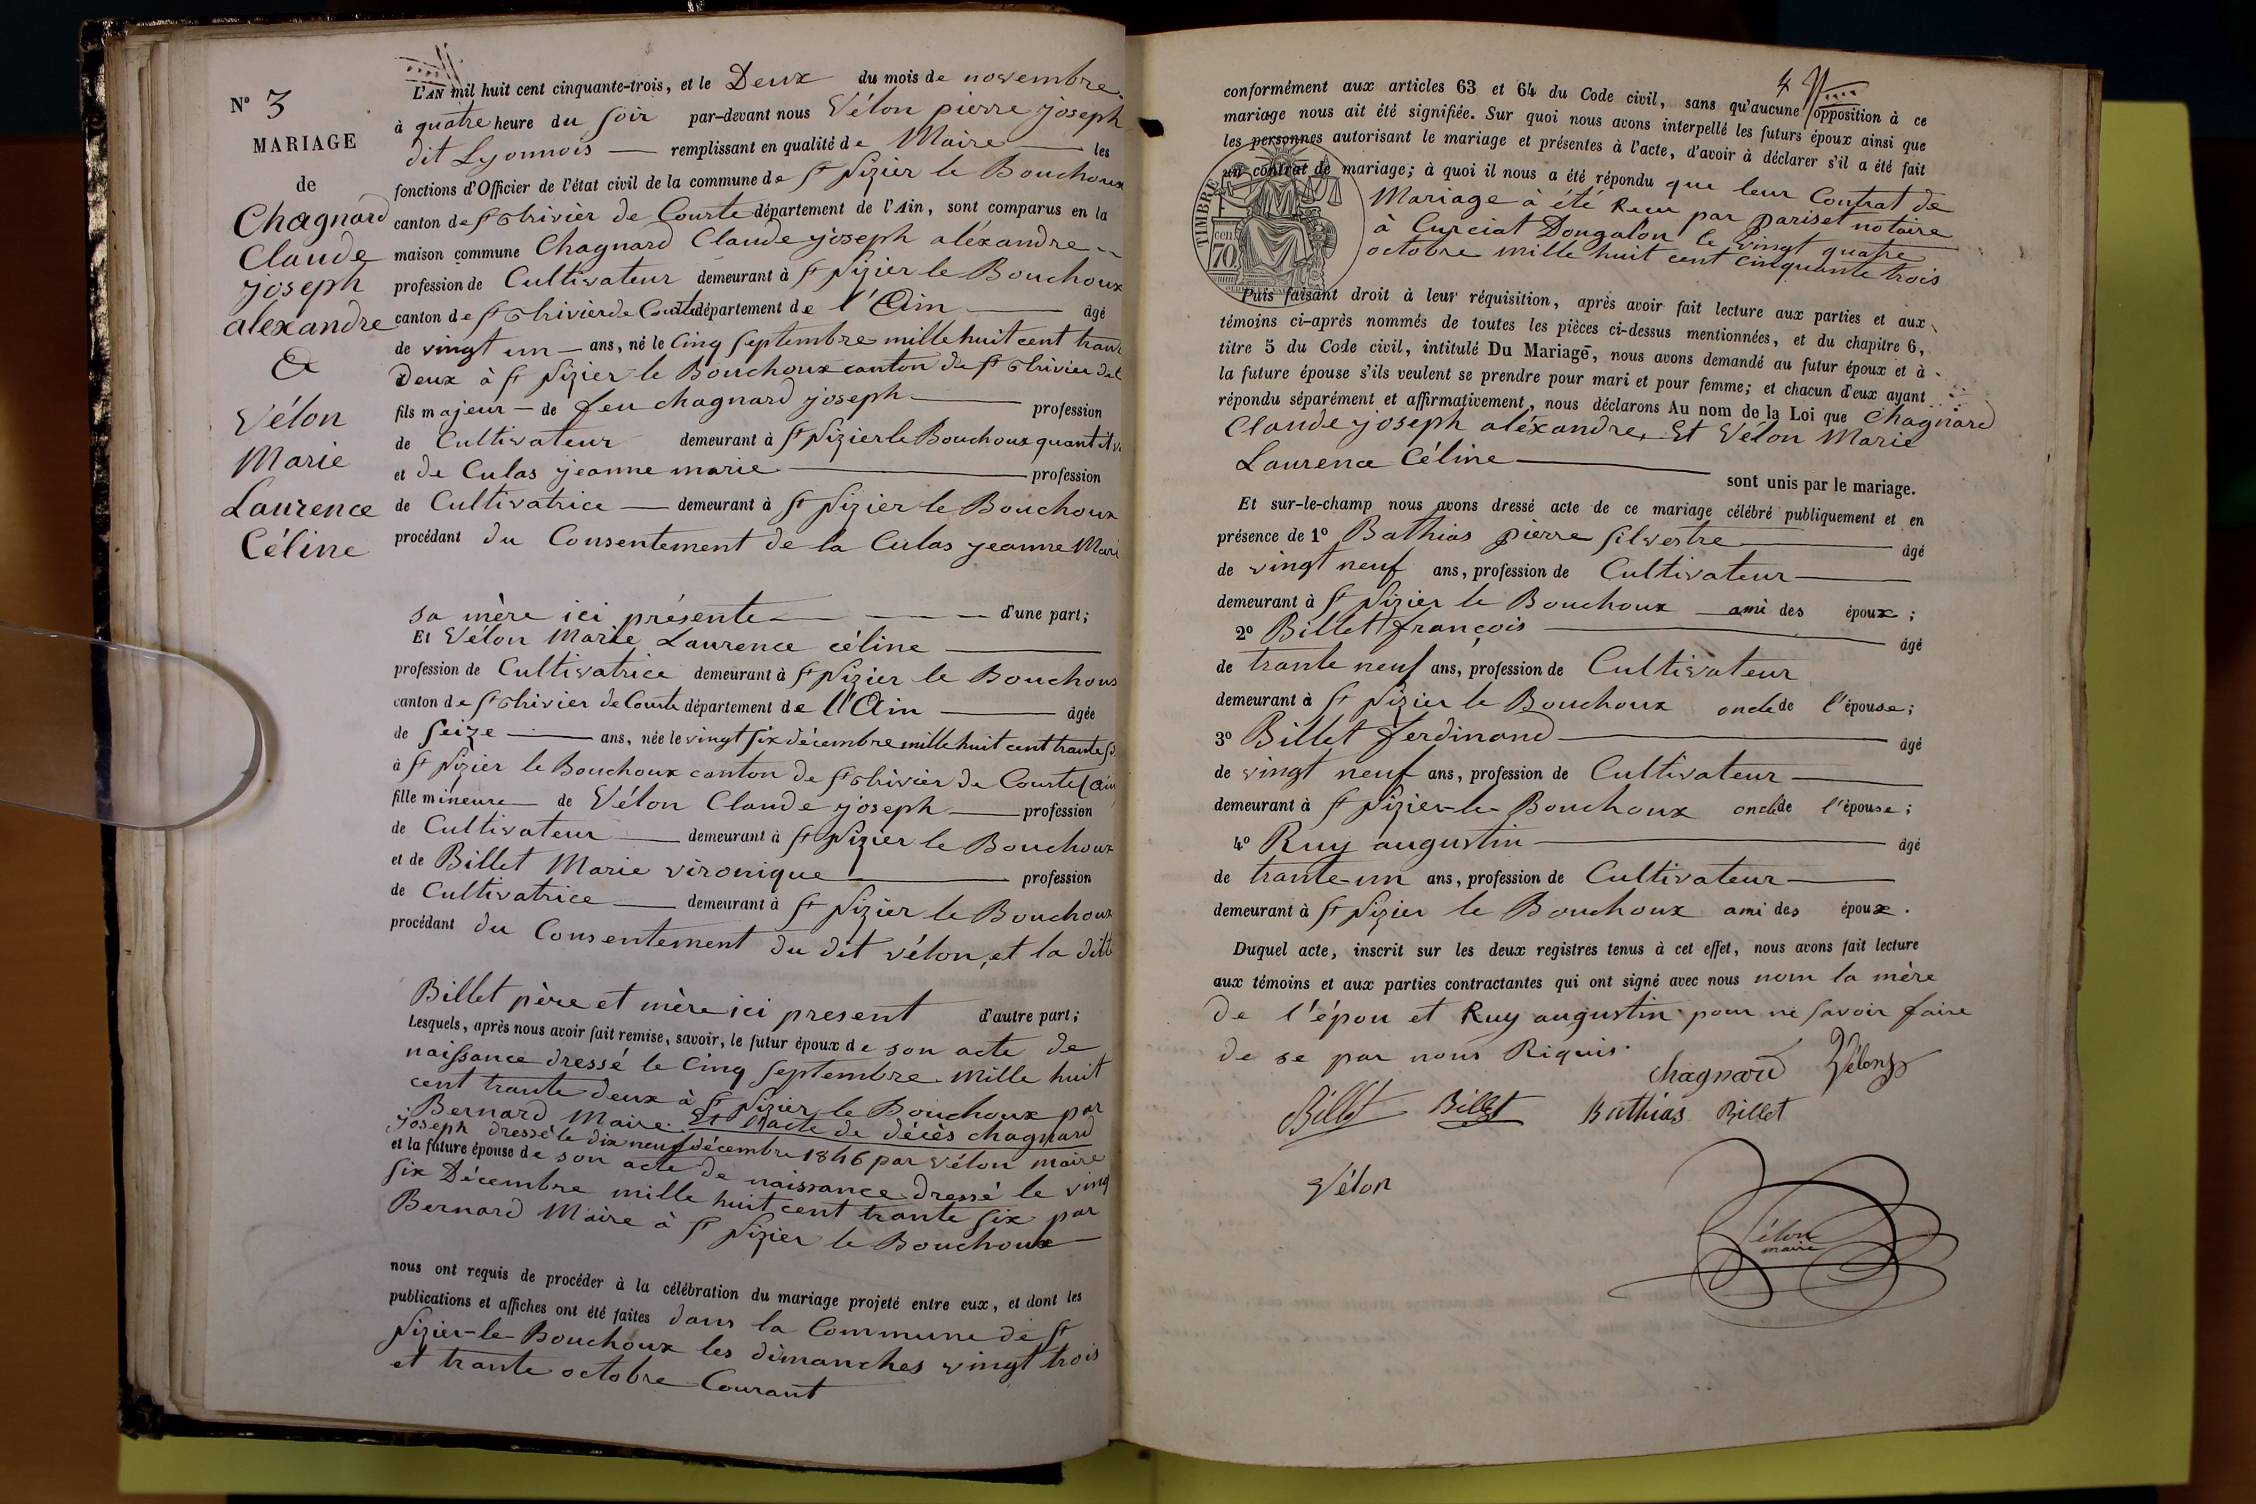 N° 3
MARIAGE
de
Chagnard
Claude
joseph
alexandre
&
Vélon
Marie
Laurence
Céline
L'AN mil huit cent cinquante-trois, et le Deux du mois de novembre
à quatre heure du soir par-devant nous Vélon pierre joseph
dit Lyonnois remplissant en qualité de Maire les
fonctions d'Officier de l'état civil de la commune de St Nizier le Bouchoux
canton de St Trivier de Courte département de l'Ain, sont comparus en la
maison commune Chagnard Claude joseph aléxandre
profession de Cultivateur demeurant à St Nizier le Bouchoux
canton de St Trivier de Courte département de l'Ain âgé
de vingt un ans, né le Cinq septembre mille huit cent trante
Deux à St Nizier le Bouchoux canton de St Trivier de
fils majeur de feu chagnard joseph profession
de Cultivateur demeurant à St Nizier le Bouchoux quant il
et de Culas jeanne marie profession
de Cultivatrice demeurant à St Nizier le Bouchoux
procédant du Consentement de la Culas jeanne Mari
sa mère ici présente d'une part;
Et Vélon Marie Laurence céline
profession de Cultivatrice demeurant à St Nizier le Bouchoux
canton de St Trivier de Courte département de l'Ain âgée
de Seize ans, née le vingt six décembre mille huit cent trante six
à St Nizier le Bouchoux canton de St Trivier de Courte (ain
fille mineure de Vélon Claude joseph profession
de Cultivateur demeurant à St Nizier le Bouchoux
et de Billet Marie vironique profession
de Cultivatrice demeurant à St Nizier le Bouchoux
procédant du Consentement du dit vélon, et la ditte
Billet père et mère ici present d'autre part;
Lesquels, après nous avoir fait remise, savoir, le futur époux de son acte de
naissance dressé le Cinq Septembre Mille huit
cent trante deux à St Nizier le Bouchoux par
Bernard Maire. Et l'acte de décès chagnard
joseph dressé le dix neuf décembre 1846 par vélon maire
et la future épouse de son acte de naissance dressé le ving
six Décembre mille huit cent trante six par
Bernard Maire à St Nizier le Bouchoux
nous ont requis de procéder à la célébration du mariage projeté entre eux, et dont les
publications et affiches ont été faites dans la Commune de St
Nizier-le-Bouchoux les dimanches vingt trois
et trante octobre Courant
4
conformément aux articles 63 et 64 du Code civil, sans qu'aucune opposition à ce
mariage nous ait été signifiée. Sur quoi nous avons interpellé les futurs époux ainsi que
les personnes autorisant le mariage et présentes à l'acte, d'avoir à déclarer s'il a été fait
un contrat de mariage; à quoi il nous a été répondu que leur Contrat de
Mariage à été Reçu par pariset notaire
à Curciat Dongalon le vingt quatre
octobre mille huit cent cinquante trois
TIMBRE
cen
70
Puis faisant droit à leur réquisition, après avoir fait lecture aux parties et aux
témoins ci-après nommés de toutes les pièces ci-dessus mentionnées, et du chapitre 6,
titre 5 du Code civil, intitulé Du Mariage, nous avons demandé au futur époux et à
la future épouse s'ils veulent se prendre pour mari et pour femme; et chacun d'eux ayant
répondu séparément et affirmativement, nous déclarons Au nom de la Loi que Chagnard
Claude joseph aléxandre, Et Vélon Marie
Laurence Céline
sont unis par le mariage.
Et sur-le-champ nous avons dressé acte de ce mariage célébré publiquement et en
présence de 1° Bathias pierre Silvestre âgé
de vingt neuf ans, profession de Cultivateur
demeurant à St Nizier le Bouchoux ami des époux;
2° Billet françois âgé
de trante neuf ans, profession de Cultivateur
demeurant à St Nizier le Bouchoux oncle de l'épouse;
3° Billet ferdinand âgé
de vingt neuf ans, profession de Cultivateur
demeurant à St Nizier-le-Bouchoux oncle de l'épouse;
4° Ruy augustin âgé
de trante-un ans, profession de Cultivateur
demeurant à St Nizier le Bouchoux ami des époux.
Duquel acte, inscrit sur les deux registres tenus à cet effet, nous avons fait lecture
aux témoins et aux parties contractantes qui ont signé avec nous nom la mère
de l'épou et Ruy augustin pour ne savoir faire
de se par nous Riquis.
Chagnard Vélon
Billet Billet Bathias Billet
Vélon
Vélon
maire